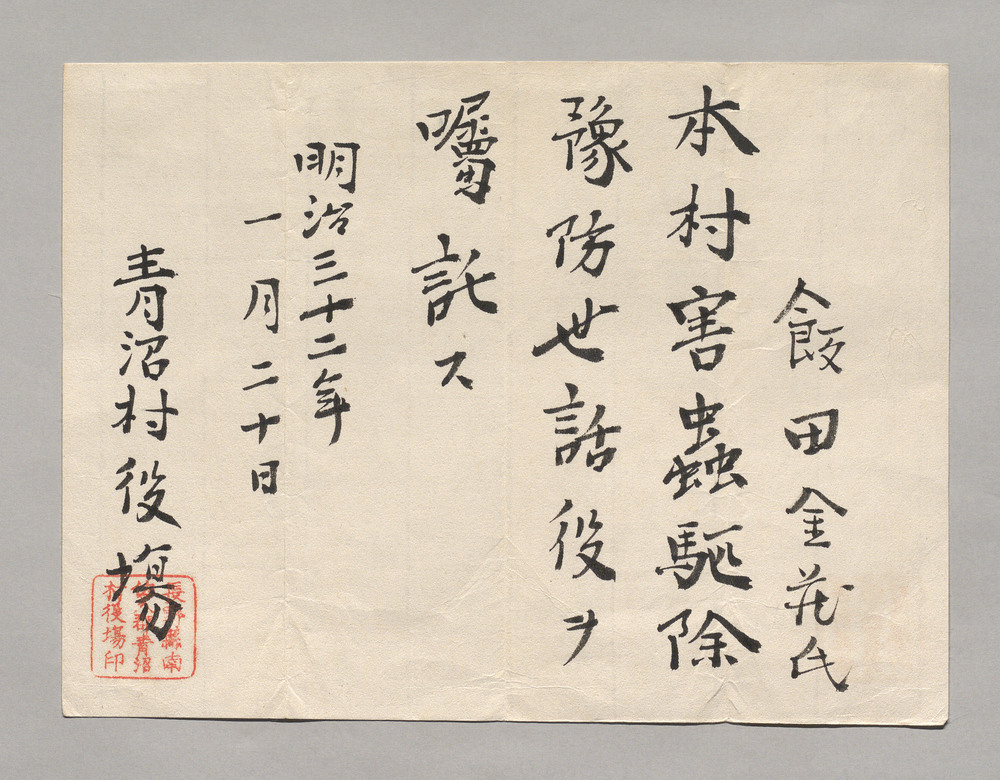 飯田金蔵氏
本村害蟲駆除
豫防世話役ヲ
囑託ス
明治三十二年
一月二十日
青沼村役場
長野縣南
佐久郡青沼
村役場印